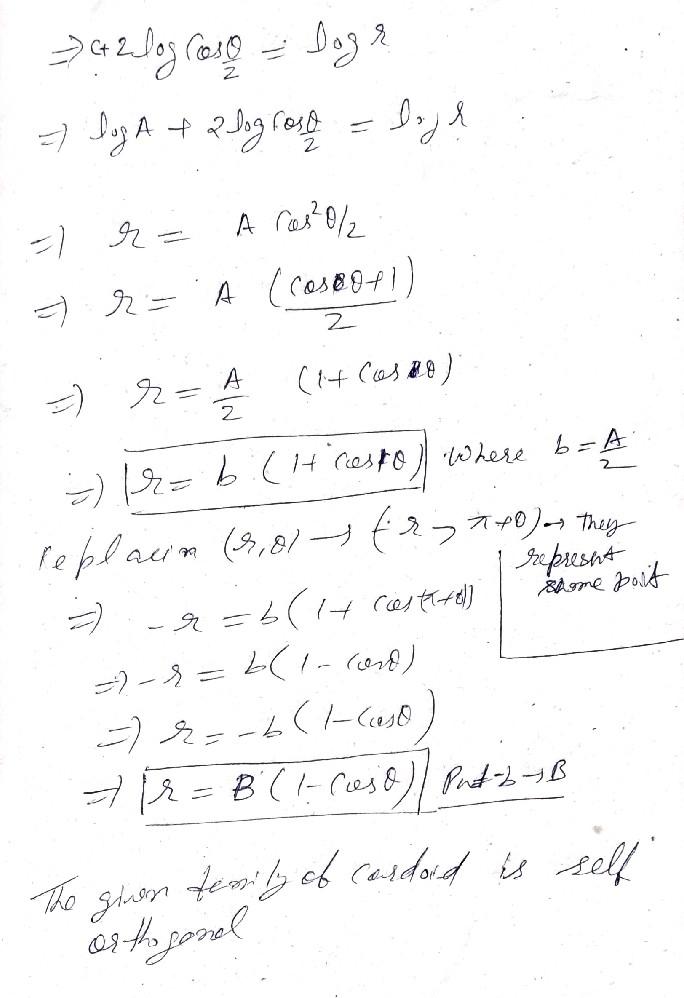 ⇒ c+2log Cosθ/2 = log r
⇒ log A + 2log Cosθ/2 = log r
⇒ r = A Cos²θ/2
⇒ r = A (cosθ+1)/2
⇒ r = A/2 (1+ Cosθ)
⇒ r = b (1+ cosθ) where b = A/2
replacin (r,θ) → (-r, π+θ) → they
represent
same point
⇒ -r = b(1+ cos(π+θ))
⇒ -r = b(1- cosθ)
⇒ r = -b(1-Cosθ)
⇒ r = B(1-Cosθ) Put -b→B
The given family of cardoid is self
orthogonal